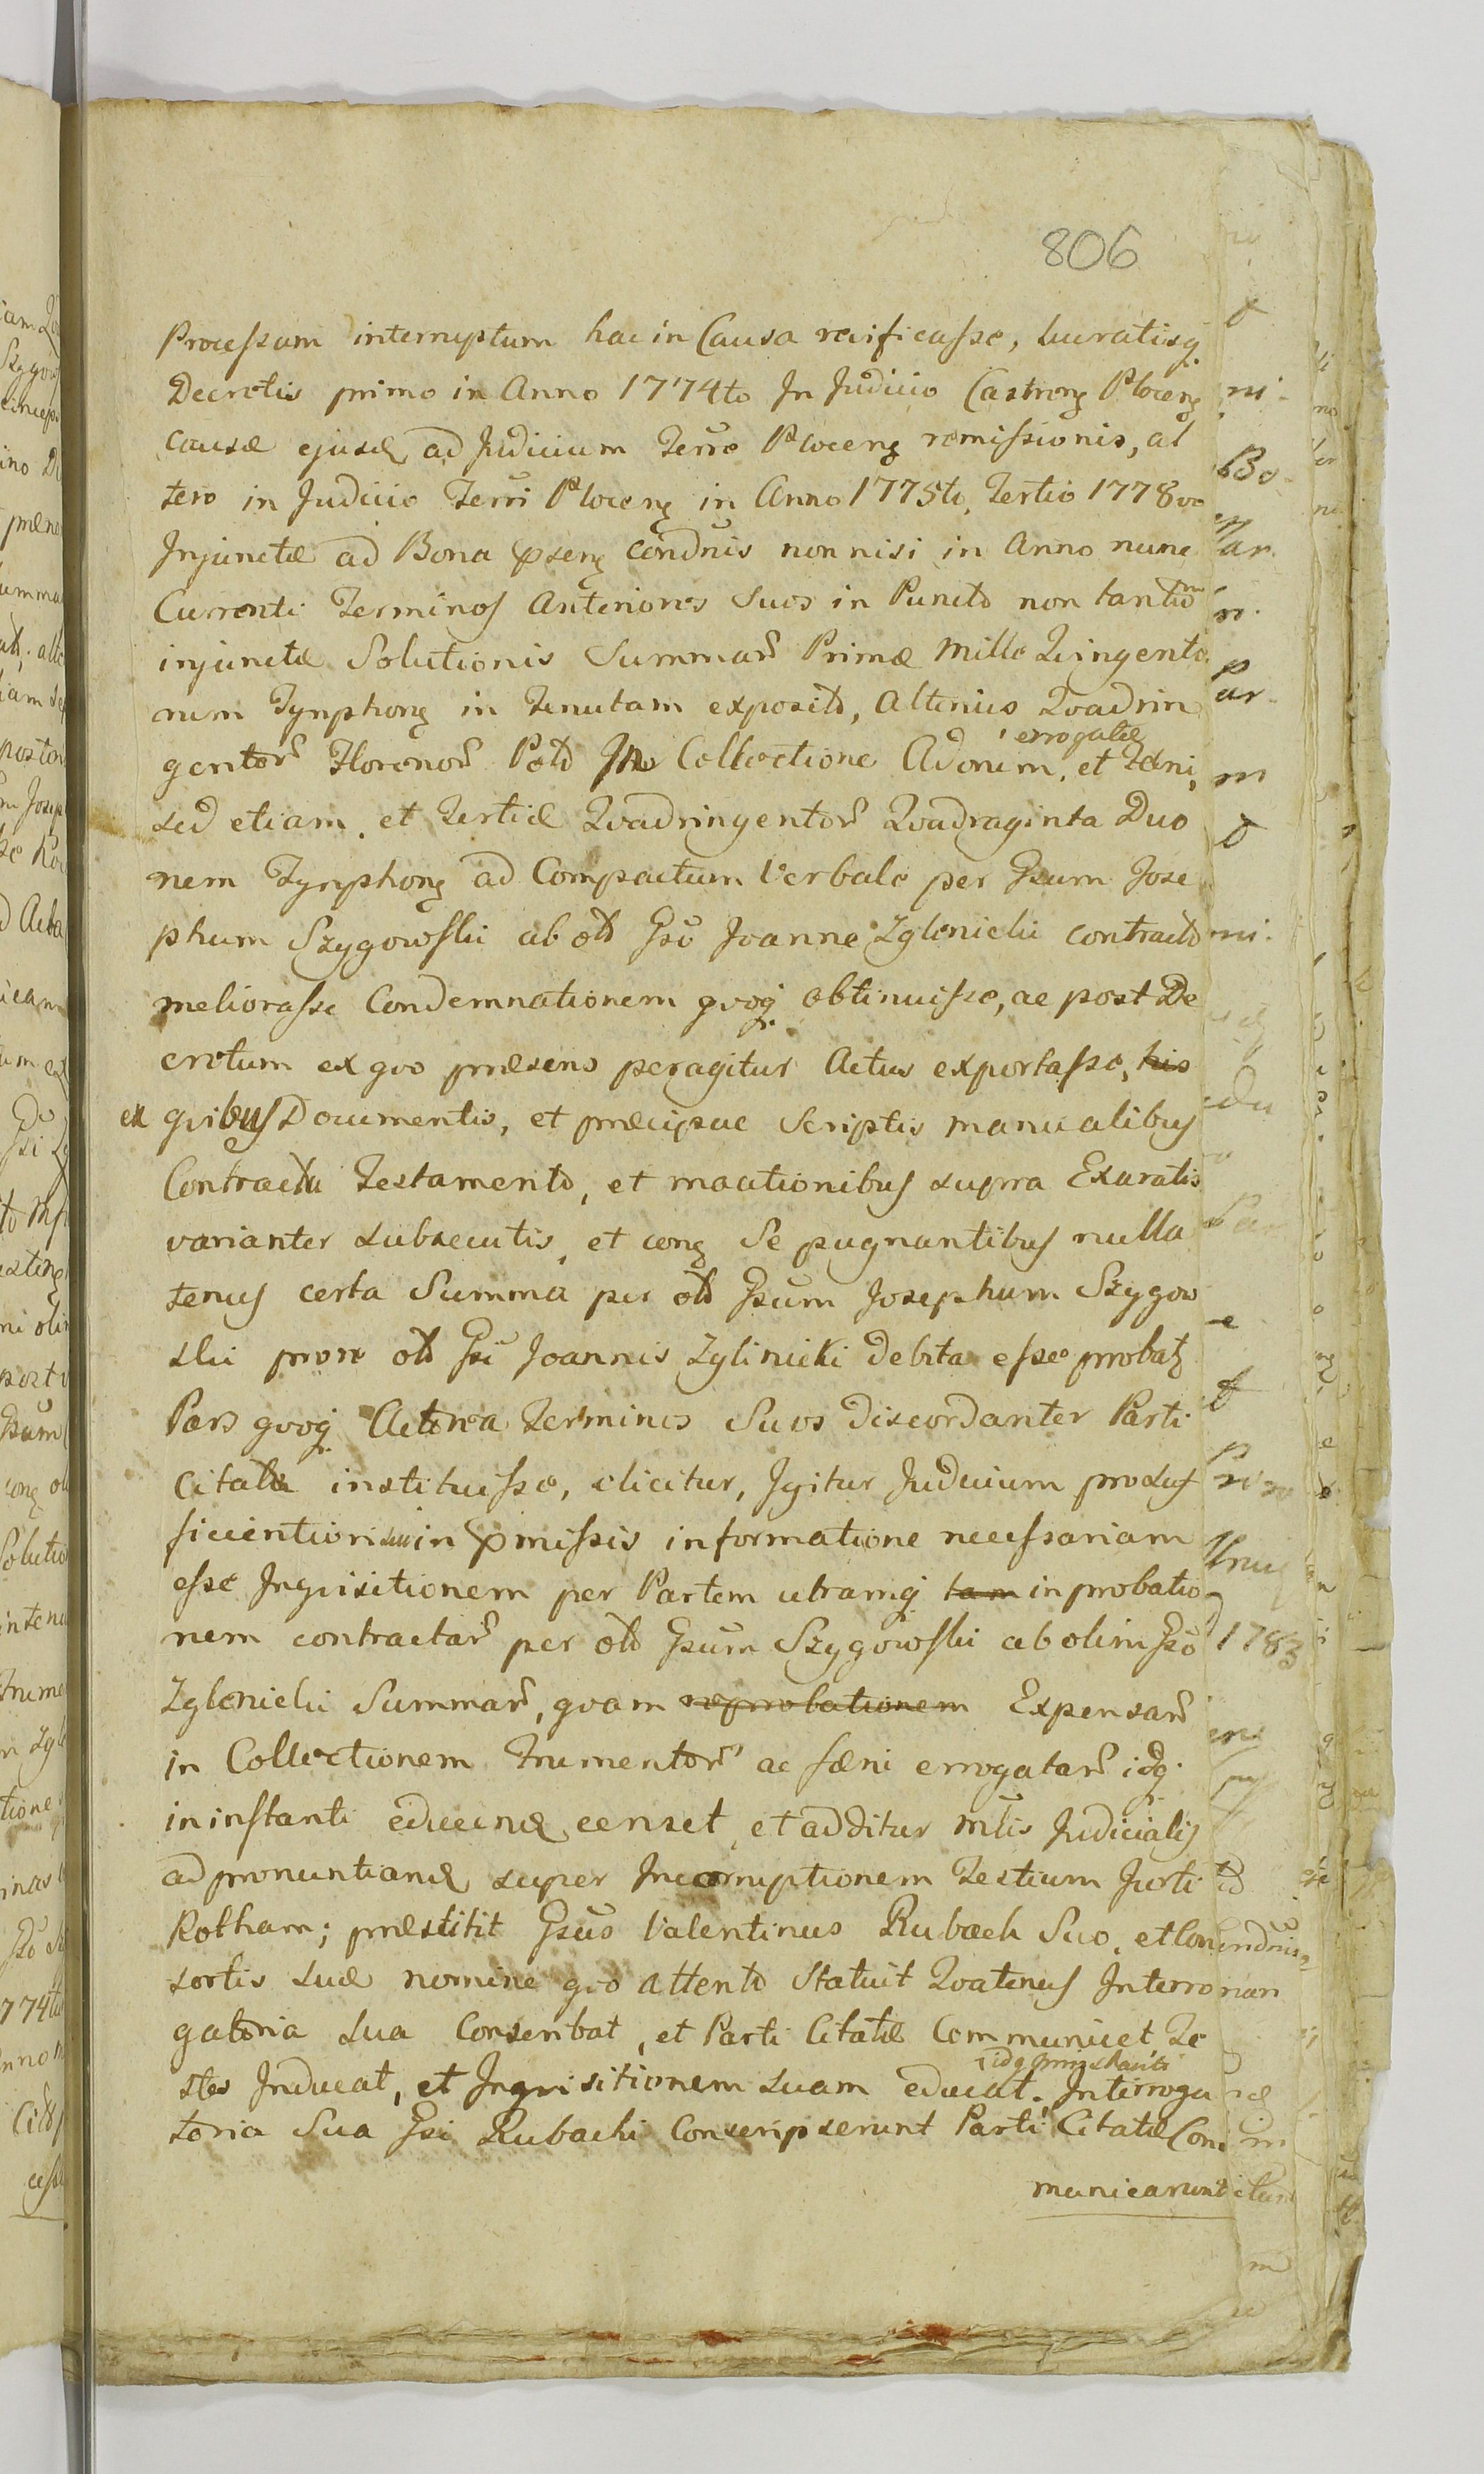 806
Processum interruptum hac in Causa reificasse, lucratisq
Decretis primo in Anno 1774to In Judicio Castreng Ploceng
Causæ ejusd ad Judicium Terre Ploceng remissionis, al
tero in Judicio Terri Ploceng in Anno 1775to, Tertio 1778vo
Injunctæ ad Bona pseng Condnis non nisi in Anno nunc
Currenti Terminos Anteriores Suos in Puncto non tantum
injunctæ Solutionis Summar Primæ Mille Qingento
rum Tynphong in Tenutam exposito, Alterius Qvadrin
errogatæ
gentor Florenor Polo In Collectione Avonum, et Fæni,
sed etiam, et Tertiæ Qvadringentor Qvadraginta Duo
rum Tynphong ad Compactum Verbale per Gsum Jose
phum Szygowski ab olo Gso Joanne Zglenicki contracto
meliorasse Condemnationem qvoq obtinuisse, ac post De
cretum ex qvo præsens peragitur Actus exportasse, his
ex qvibus Documentis, et præcipue Scriptis manualibus
Contractu Testamento, et mactionibus supra Exaratis
varianter subsecutis, et ceng Se pugnantibus nulla
tenus certa Summa per olo Gsum Josephum Szygow
ski prore olo Gsi Joannis Zglinicki Debita esse probat
Pars qvoq Actorea Terminos Suos discordanter Parti
Citatæ instituisse, elicitur, Igitur Judicium pro suf
ficientiori sui in pmissis informatione necessariam
esse Inqvisitionem per Partem utramq tam in probatio
nem contractar per olo Gsum Szygowski ab olim Gso
Zglenicki Summar, qvam reprobationem Expensar
in Collectionem Frumentor ac fæni errogatar idq
in instanti educend censet, et additur mtis Judicialis
ad pronuntiand super Incorruptionem Testium Jurti
Rotham; præstitit Gsus Valentinus Rubach Suo, et Con
sortis suæ nomine qvo attento Statuit Qvatenus Interro
gatoria sua Conscribat, et Parti Citatæ Communicet Te
stes Inducat, et Inqvisitionem suam educat. Interroga
toria Sua Gsi Rubachi Conscripserunt Parti Citatæ Com
municarunt